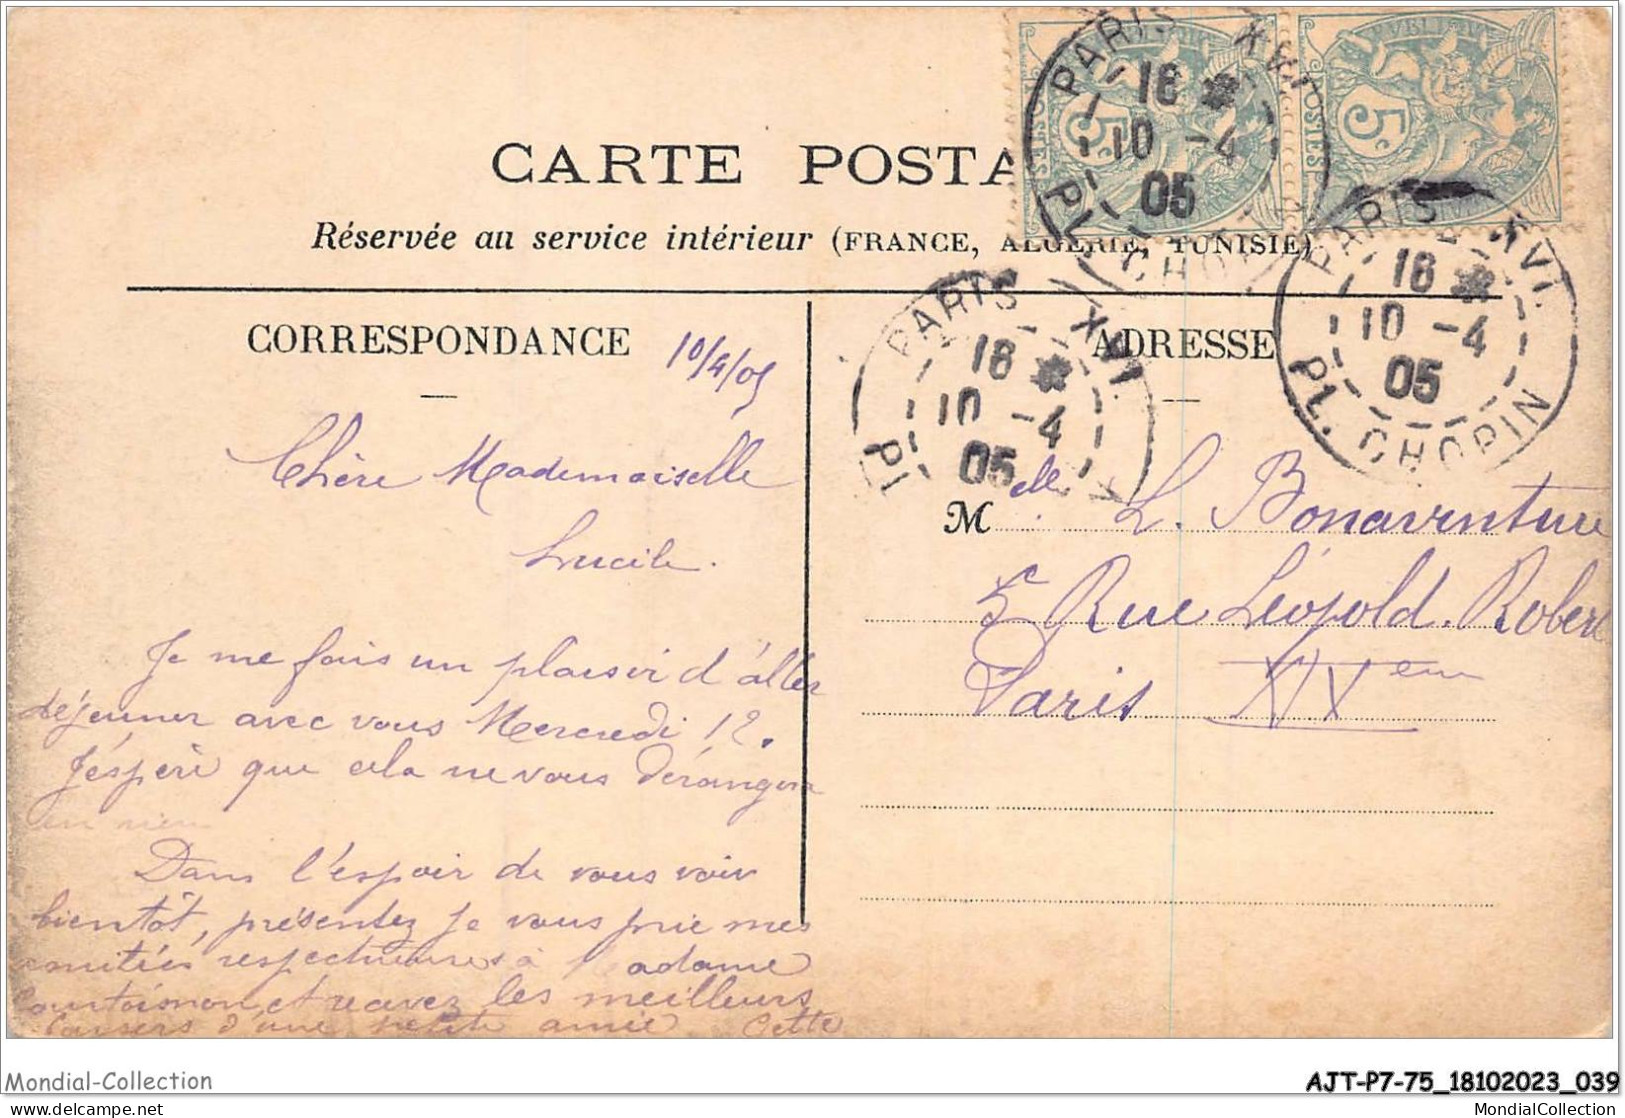 CARTE POSTA
Réservée au service intérieur (FRANCE, ALGÉRIE, TUNISIE)
POSTES 5c
POSTES 5c
PARIS XVI
18
10 -4
05
PL. CHOPIN
PARIS XVI.
18
10 -4
05
PL. CHOPIN
PARIS XVI.
18
10 -4
05
PL
CORRESPONDANCE
10/4/05
Chère Mademoiselle
Lucile.
Je me fais un plaisir d'aller
déjeuner avec vous Mercredi 12.
J'éspère que cela ne vous dérangera
en rien
Dans l'espoir de vous voir
bientôt, présentez je vous prie mes
amitiés respectueuses à Madame
et recevez les meilleurs
baisers d'une petite amie. Cette
ADRESSE
Melle L. Bonaventure
5 Rue Léopold. Robert
Paris XIVeme
Mondial-Collection
AJT-P7-75_18102023_039
www.delcampe.net
MondialCollection